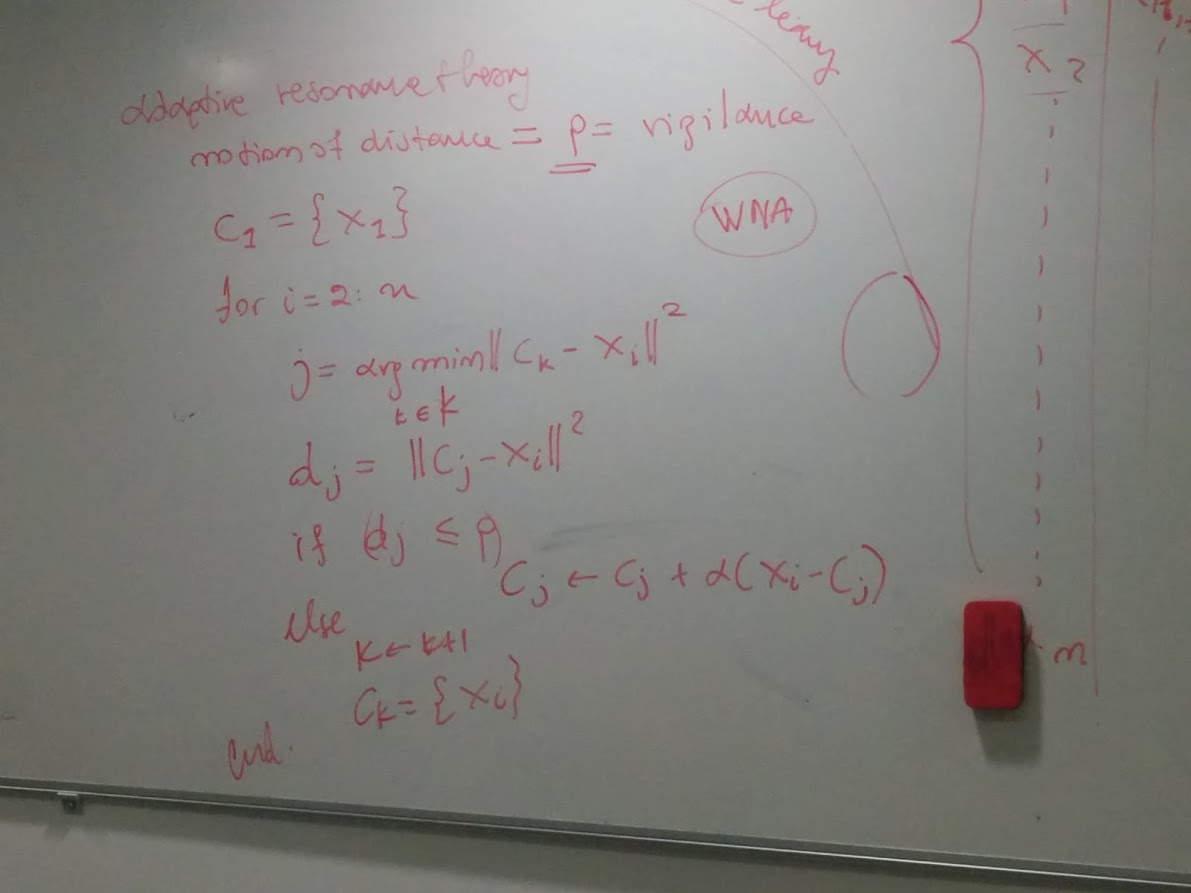 adaptive resonance theory
notion of distance = ρ = vigilance
C₁ = {x₁}
WNA
for i = 2 : n
j = arg min ‖ C_k - x_i ‖²
k ∈ K
d_j = ‖C_j - x_i‖²
if (d_j ≤ ρ)
C_j ← C_j + α(x_i - C_j)
else
K ← K+1
C_K = {x_i}
end.
x₂
n